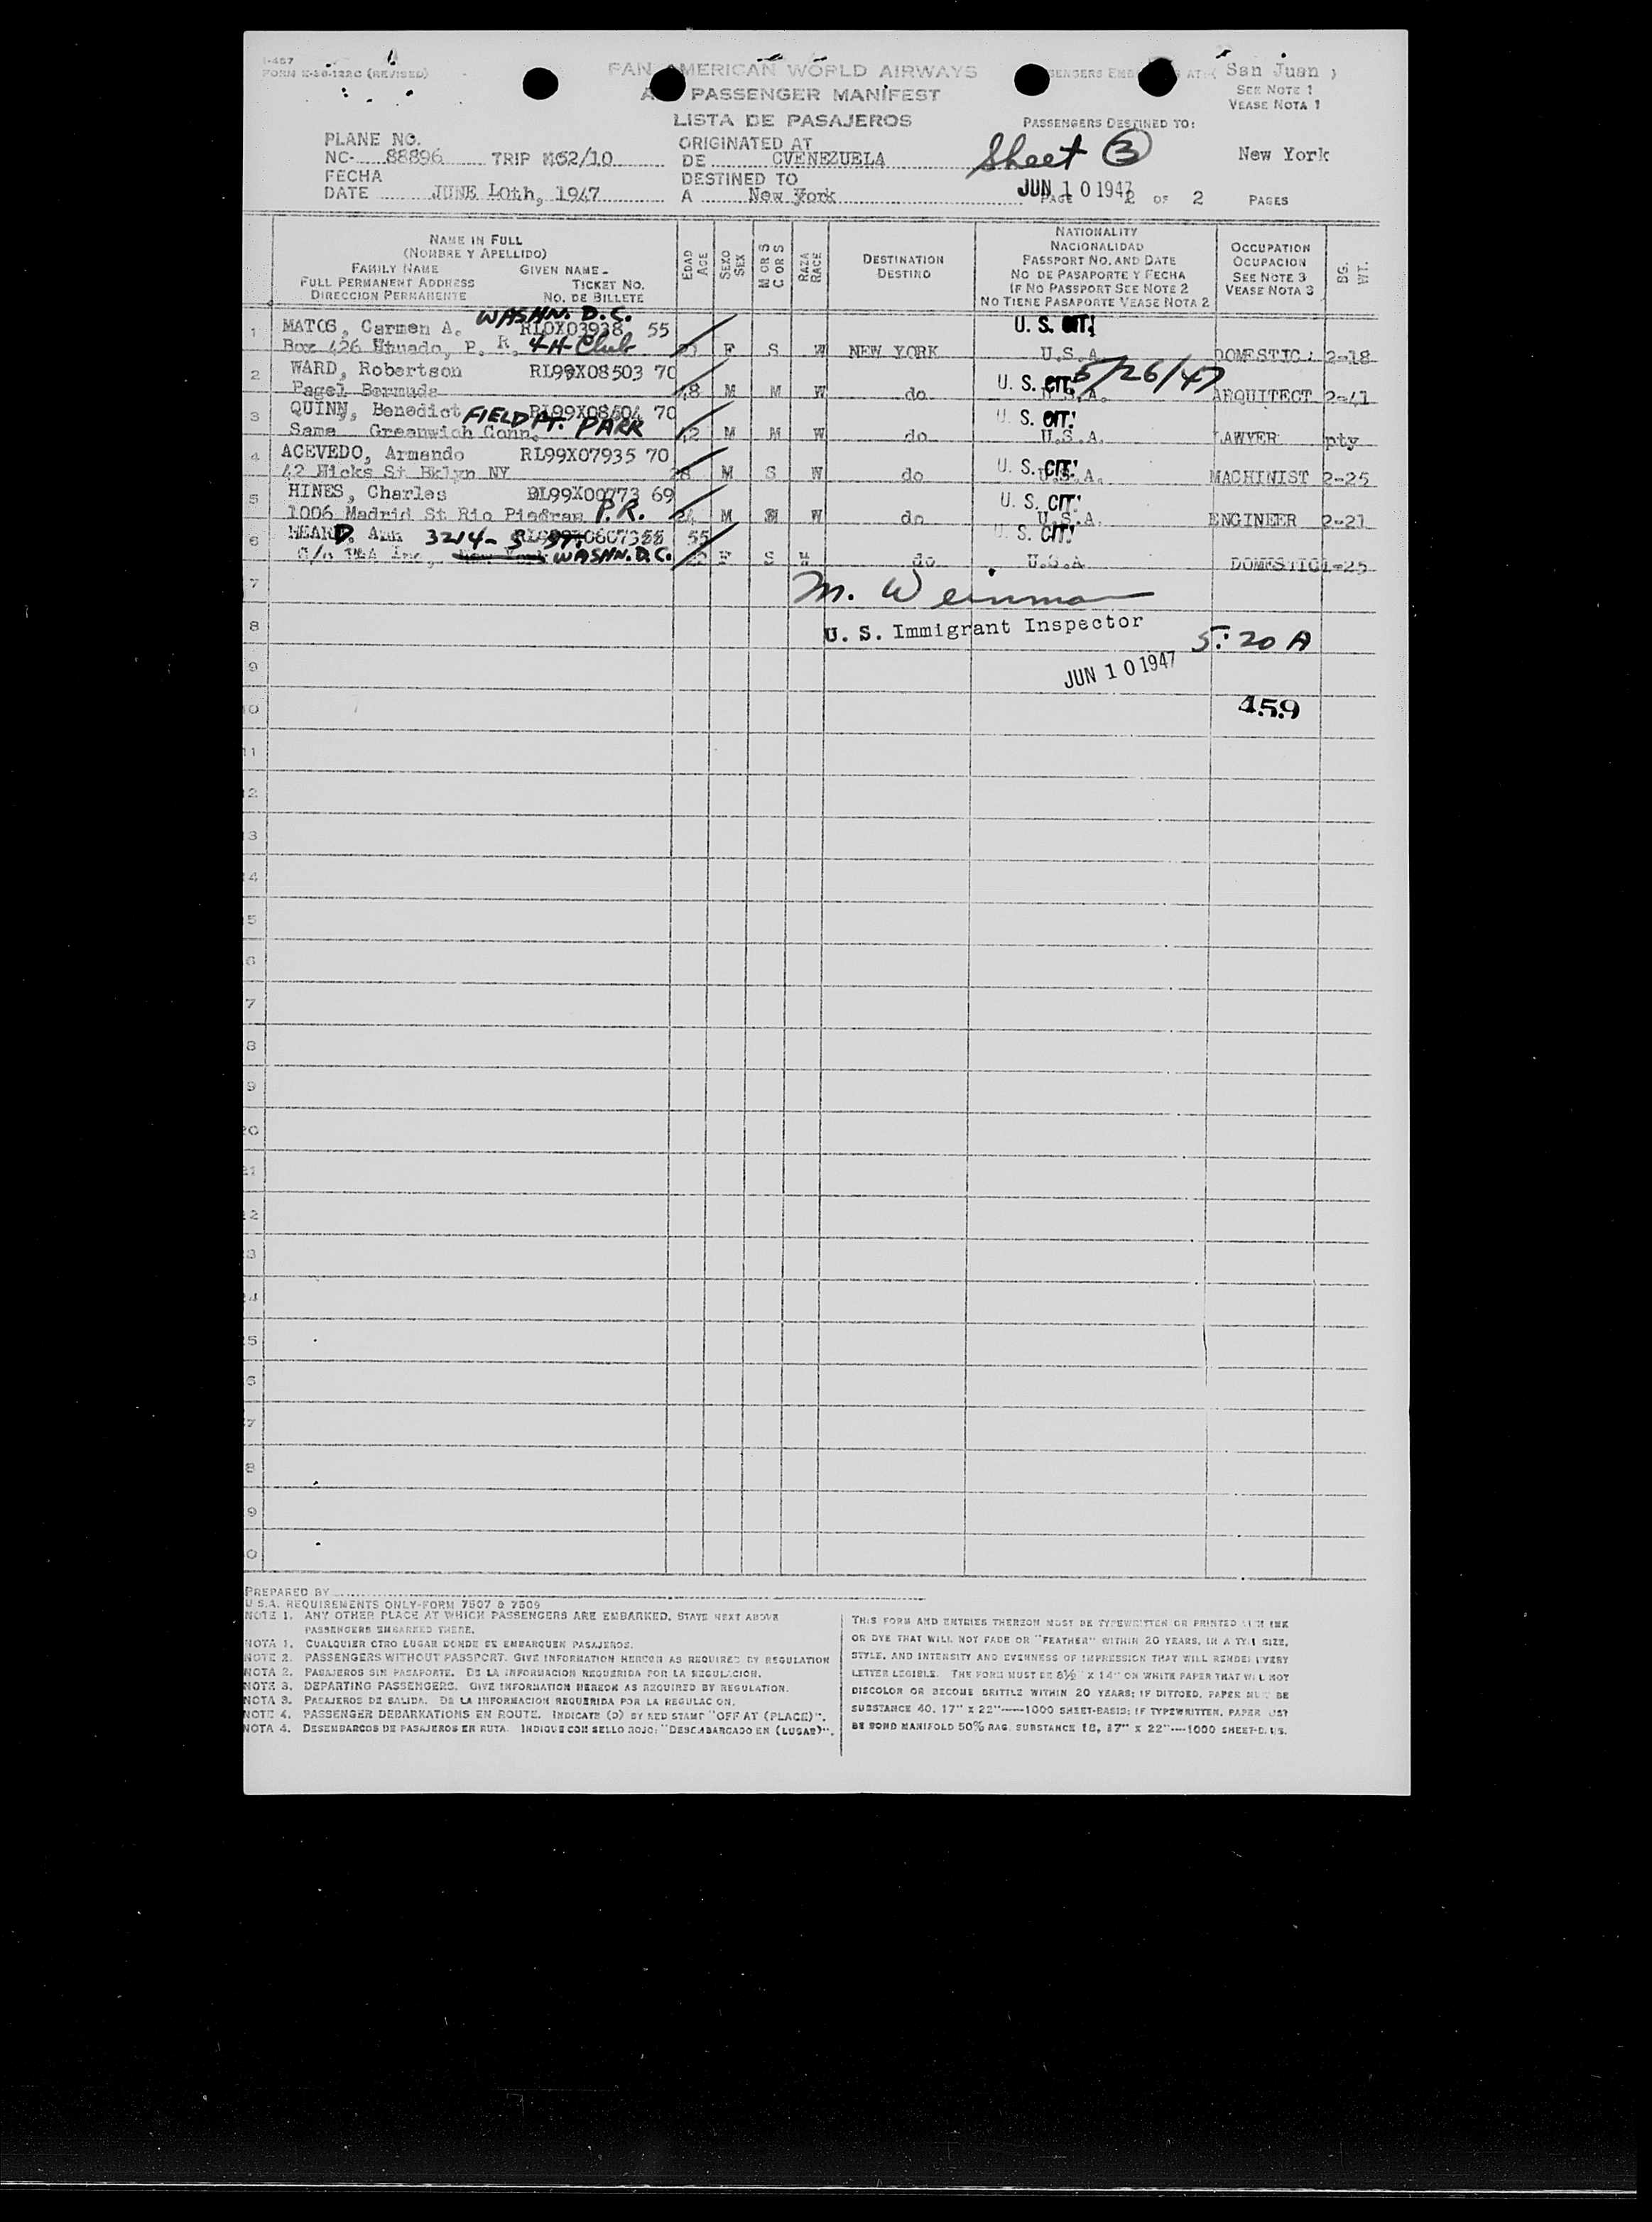 I-487
FORM K-30-122C (REVISED)
PAN AMERICAN WORLD AIRWAYS
PASSENGER MANIFEST
LISTA DE PASAJEROS
San Juan
SEE NOTE 1
VEASE NOTA 1
PASSENGERS DESTINED TO:
New York
PLANE NO.
NC. 88896 TRIP 52/10
FECHA
DATE JUNE 10th, 1947
ORIGINATED AT
DE CVENEZUELA
DESTINED TO
A New York
Sheet 3
JUN 10 1947
PAGE 2 OF 2 PAGES
NAME IN FULL
(NOMBRE Y APELLIDO)
FAMILY NAME GIVEN NAME-
FULL PERMANENT ADDRESS TICKET NO.
DIRECCION PERMANENTE NO. DE BILLETE
EDAD
AGE
SEXO
SEX
M OR S
C OR S
RAZA
RACE
DESTINATION
DESTINO
NATIONALITY
NACIONALIDAD
PASSPORT NO. AND DATE
NO DE PASAPORTE Y FECHA
IF NO PASSPORT SEE NOTE 2
NO TIENE PASAPORTE VEASE NOTA 2
OCCUPATION
OCUPACION
SEE NOTE 3
VEASE NOTA 3
BG.
WT.
WASHN. D.C.
1 MATOS, Carmen A. RL0X03938 55 U. S. CIT.
Box 426 Utuado, P. R. 4H Club F S W NEW YORK U.S.A. DOMESTIC 2-18
2 WARD, Robertson RL99X08503 70 U. S. CIT. 5/26/47
Paget Bermuda 48 M M W do U.S.A. ARQUITECT 2-41
3 QUINN, Benedict FIELD PT. PARK RL99X08504 70 U. S. CIT.
Same Greenwich Conn. 42 M M W do U.S.A. LAWYER pty
4 ACEVEDO, Armando RL99X07935 70 U. S. CIT.
42 Hicks St Bklyn NY 28 M S W do U.S.A. MACHINIST 2-25
5 HINES, Charles RL99X00773 69 U. S. CIT.
1006 Madrid St Rio Piedras P.R. 24 M W do U.S.A. ENGINEER 2-21
6 HEARD, Ann 3214- S ST. 55 U. S. CIT.
WASHN. D.C. F S W do U.S.A DOMESTIC 1-25
7
M. Weinman
8 U. S. Immigrant Inspector 5:20 A
9 JUN 10 1947
10 459
11
12
13
14
15
16
17
18
19
20
21
22
23
24
25
26
27
28
29
30
PREPARED BY
U.S.A. REQUIREMENTS ONLY-FORM 7507 & 7509
NOTE 1. ANY OTHER PLACE AT WHICH PASSENGERS ARE EMBARKED, STATE NEXT ABOVE
PASSENGERS EMBARKED THERE.
NOTA 1. CUALQUIER OTRO LUGAR DONDE SE EMBARQUEN PASAJEROS.
NOTE 2. PASSENGERS WITHOUT PASSPORT. GIVE INFORMATION HEREON AS REQUIRED BY REGULATION
NOTA 2. PASAJEROS SIN PASAPORTE. DE LA INFORMACION REQUERIDA POR LA REGULACION.
NOTE 3. DEPARTING PASSENGERS. GIVE INFORMATION HEREON AS REQUIRED BY REGULATION.
NOTA 3. PASAJEROS DE SALIDA. DE LA INFORMACION REQUERIDA POR LA REGULACION.
NOTE 4. PASSENGER DEBARKATIONS EN ROUTE. INDICATE (D) BY RED STAMP "OFF AT (PLACE)".
NOTA 4. DESEMBARCOS DE PASAJEROS EN RUTA. INDIQUE CON SELLO ROJO: "DESEMBARCADO EN (LUGAR)".
THIS FORM AND ENTRIES THEREON MUST BE TYPEWRITTEN OR PRINTED WITH INK
OR DYE THAT WILL NOT FADE OR "FEATHER" WITHIN 20 YEARS, IN A TYPE SIZE,
STYLE, AND INTENSITY AND EVENNESS OF IMPRESSION THAT WILL RENDER EVERY
LETTER LEGIBLE. THE FORM MUST BE 8½" X 14" ON WHITE PAPER THAT WILL NOT
DISCOLOR OR BECOME BRITTLE WITHIN 20 YEARS; IF DITTOED, PAPER MUST BE
SUBSTANCE 40, 17" X 22"----1000 SHEET-BASIS; IF TYPEWRITTEN, PAPER MUST
BE BOND MANIFOLD 50% RAG, SUBSTANCE 18, 17" X 22"----1000 SHEET-BASIS.